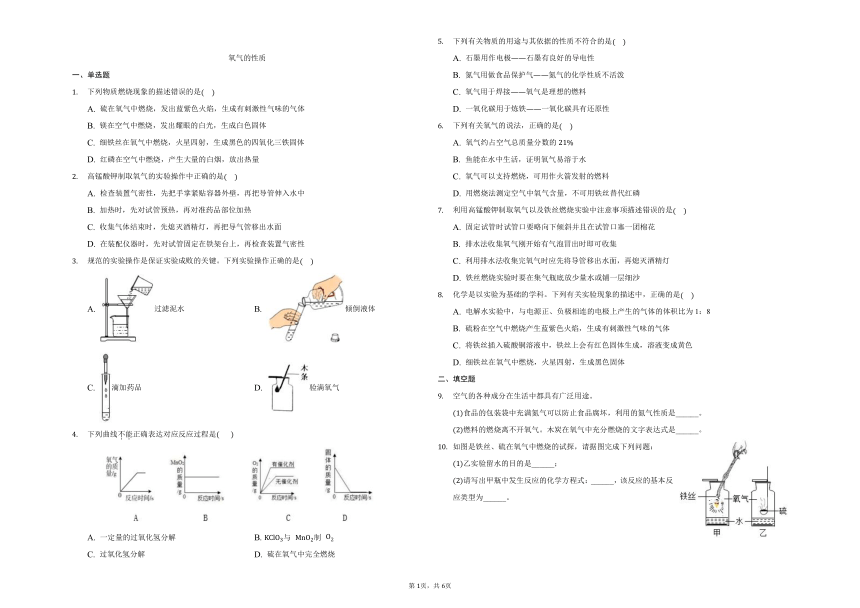 氧气的性质
一、单选题
1. 下列物质燃烧现象的描述错误的是( )
A. 硫在氧气中燃烧，发出蓝紫色火焰，生成有刺激性气味的气体
B. 镁在空气中燃烧，发出耀眼的白光，生成白色固体
C. 细铁丝在氧气中燃烧，火星四射，生成黑色的四氧化三铁固体
D. 红磷在空气中燃烧，产生大量的白烟，放出热量
2. 高锰酸钾制取氧气的实验操作中正确的是( )
A. 检查装置气密性，先把手掌紧贴容器外壁，再把导管伸入水中
B. 加热时，先对试管预热，再对准药品部位加热
C. 收集气体结束时，先熄灭酒精灯，再把导气管移出水面
D. 在装配仪器时，先对试管固定在铁架台上，再检查装置气密性
3. 规范的实验操作是保证实验成败的关键。下列实验操作正确的是( )
A. 过滤泥水
B. 倾倒液体
C. 滴加药品
D. 木条 验满氧气
4. 下列曲线不能正确表达对应反应过程是( )
氧气的质量/g 0 反应时间/s A
MnO₂的质量/g 0 反应时间/s B
O₂的质量/g 有催化剂 无催化剂 0 反应时间/s C
固体的质量/g 0 反应时间/s D
A. 一定量的过氧化氢分解
B. KClO₃与 MnO₂制 O₂
C. 过氧化氢分解
D. 硫在氧气中完全燃烧
5. 下列有关物质的用途与其依据的性质不符合的是( )
A. 石墨用作电极——石墨有良好的导电性
B. 氮气用做食品保护气——氮气的化学性质不活泼
C. 氧气用于焊接——氧气是理想的燃料
D. 一氧化碳用于炼铁——一氧化碳具有还原性
6. 下列有关氧气的说法，正确的是( )
A. 氧气约占空气总质量分数的21%
B. 鱼能在水中生活，证明氧气易溶于水
C. 氧气可以支持燃烧，可用作火箭发射的燃料
D. 用燃烧法测定空气中氧气含量，不可用铁丝替代红磷
7. 利用高锰酸钾制取氧气以及铁丝燃烧实验中注意事项描述错误的是( )
A. 固定试管时试管口要略向下倾斜并且在试管口塞一团棉花
B. 排水法收集氧气刚开始有气泡冒出时即可收集
C. 利用排水法收集完氧气时应先将导管移出水面，再熄灭酒精灯
D. 铁丝燃烧实验时要在集气瓶底放少量水或铺一层细沙
8. 化学是以实验为基础的学科。下列有关实验现象的描述中，正确的是( )
A. 电解水实验中，与电源正、负极相连的电极上产生的气体的体积比为1：8
B. 硫粉在空气中燃烧产生蓝紫色火焰，生成有刺激性气味的气体
C. 将铁丝插入硫酸铜溶液中，铁丝上会有红色固体生成，溶液变成黄色
D. 细铁丝在氧气中燃烧，火星四射，生成黑色固体
二、填空题
9. 空气的各种成分在生活中都具有广泛用途。
(1)食品的包装袋中充满氮气可以防止食品腐坏，利用的氮气性质是______。
(2)燃料的燃烧离不开氧气。木炭在氧气中充分燃烧的文字表达式是______。
10. 如图是铁丝、硫在氧气中燃烧的试探，请据图完成下列问题：
(1)乙实验留水的目的是______；
(2)请写出甲瓶中发生反应的化学方程式：______，该反应的基本反
应类型为______。
铁丝 氧气 硫
水
甲 乙
第1页，共6页